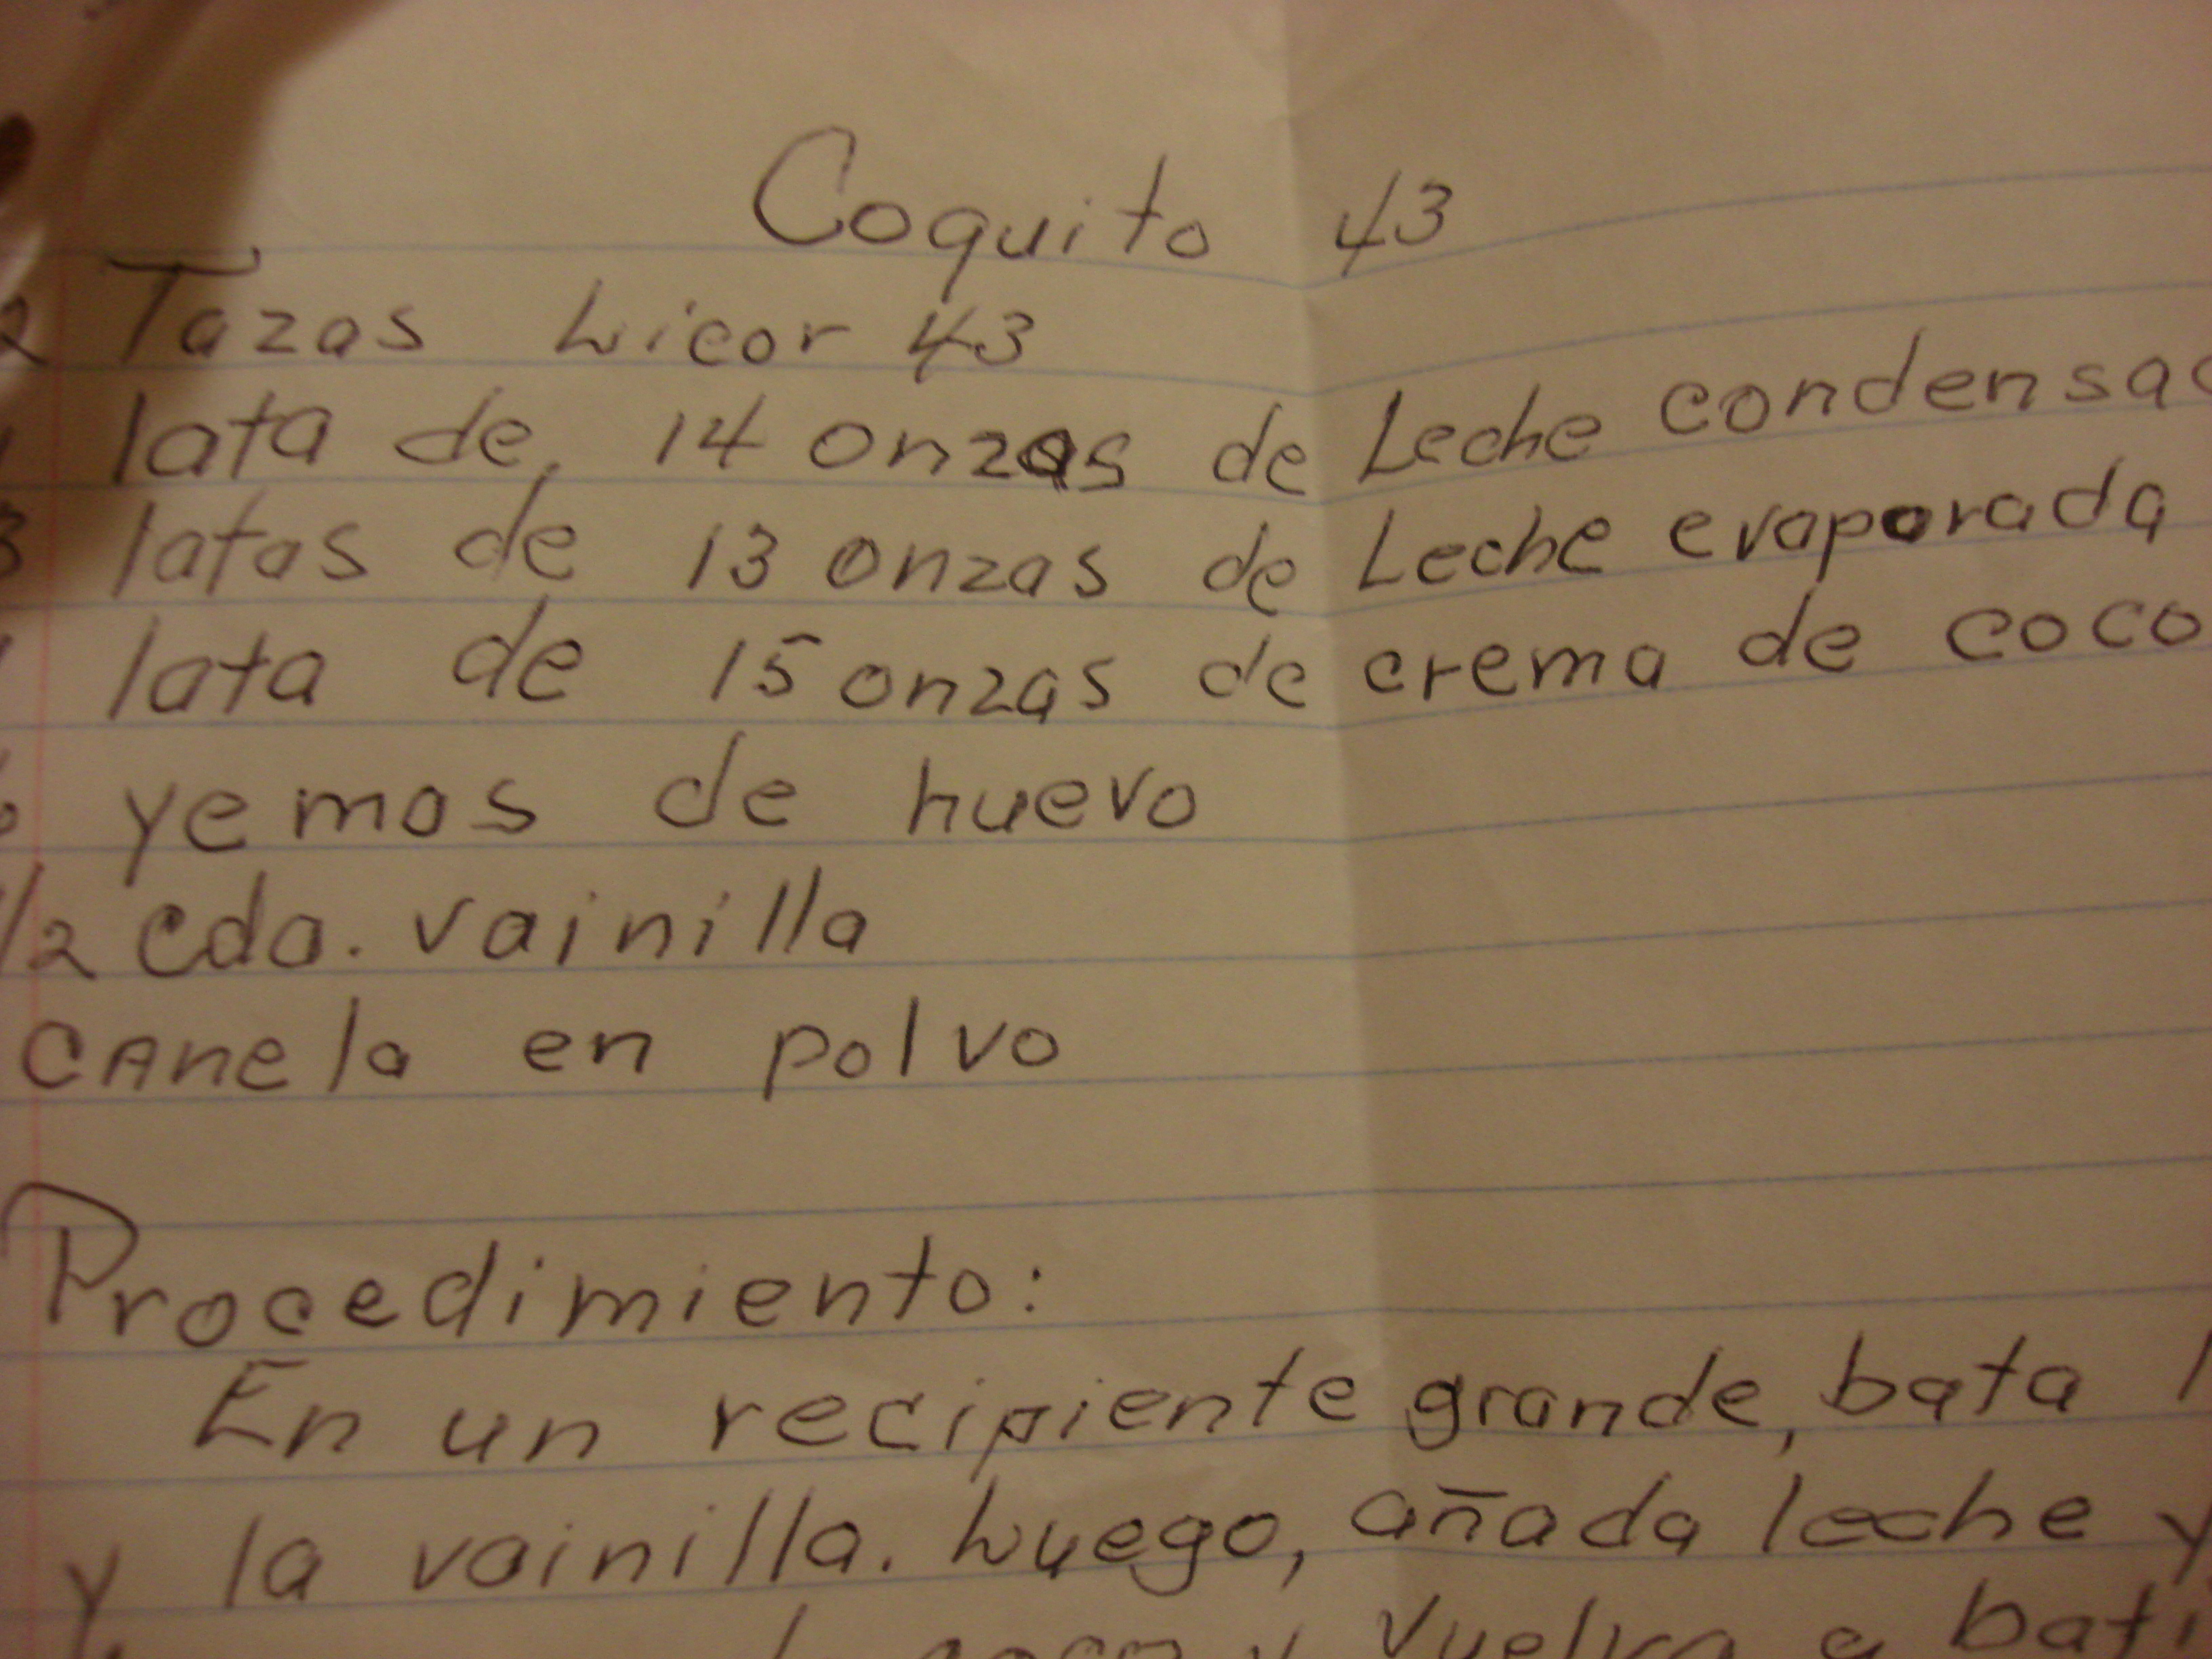 Coquito 43
2 Tazas Licor 43
1 lata de 14 onzas de Leche condensad
3 latas de 13 onzas de Leche evaporada
1 lata de 15 onzas de crema de coco
6 yemas de huevo
1/2 cda. vainilla
CANela en polvo
Procedimiento:
En un recipiente grande, bata l
y la vainilla. Luego, añada leche y
coco y vuelva a bati